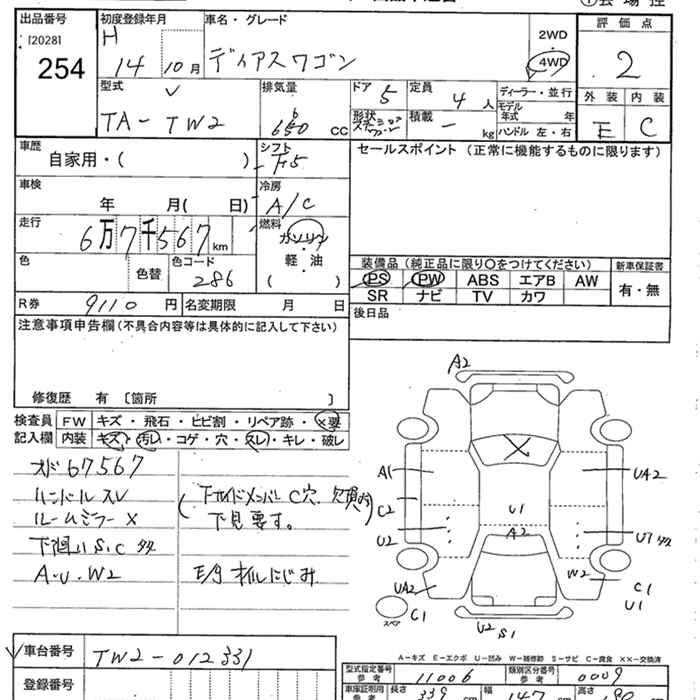 出品番号
[20281]
254
初度登録年月
H
14 10月
車名・グレード
ディアスワゴン
2WD
4WD
評価点
2
外装 内装
E C
型式
TA-TW2
排気量
660 CC
ドア 5
形状
定員 4人
積載 - kg
ディーラー・並行
モデル年式 年
ハンドル 左・右
車歴
自家用・( )
シフト
F5
セールスポイント (正常に機能するものに限ります)
車検
年 月( 日)
冷房
A/C
走行
6万7千567km
燃料
ガソリン
・
軽・油
( )
色
色替
色コード
286
装備品(純正品に限り〇をつけてください)
PS PW ABS エアB AW
SR ナビ TV カワ
新車保証書
有・無
R券 9110円
名変期限 月 日
後日品
注意事項申告欄(不具合内容等は具体的に記入して下さい)
修復歴 有 〔箇所 〕
検査員記入欄
FW キズ・飛石・ヒビ割・リペア跡・×要
内装 キズ・汚れ・コゲ・穴・スレ・キレ・破レ
オド67567
ハンドルスレ
ルームミラーX
下廻りS.C多々
A.U.W2
(下サイドメンバーC穴、欠損有)
下見要す。
E/gオイルにじみ
A2
A1
C2
U2
UA2
U1
A2
UA2
U1多々
W2
C1
U1
スペア
C1
U2 S1
A-キズ E-エクボ U-凹み W-補修跡 S-サビ C-腐食 XX-交換済
車台番号
TW2-012331
登録番号
型式指定番号
参考
11006
類別区分番号
参考
0009
車庫証明用
参考
長さ
339
cm
幅
147
cm
高さ